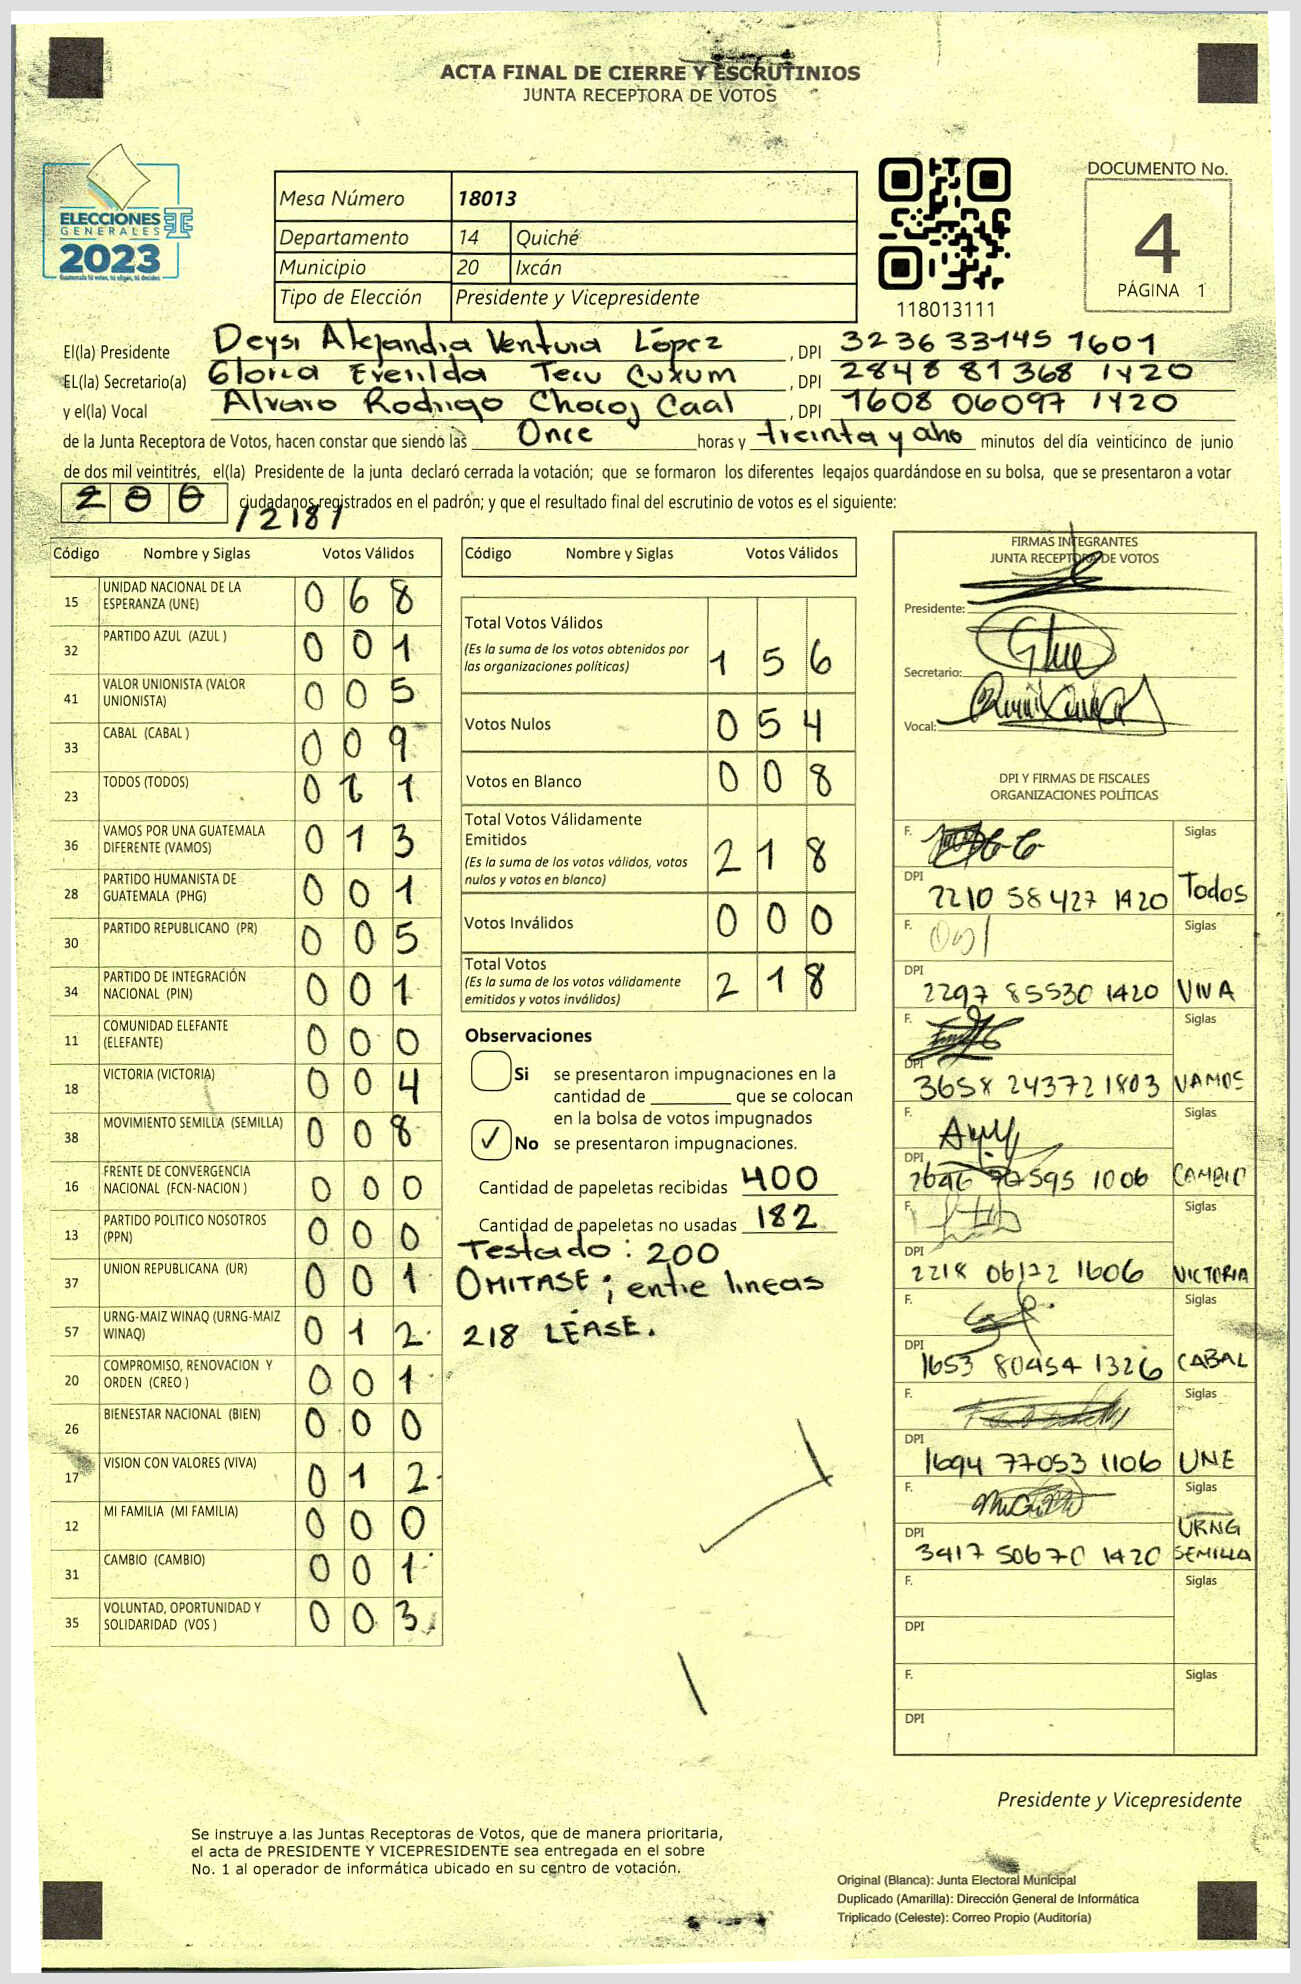 ACTA FINAL DE CIERRE Y ESCRUTINIOS
JUNTA RECEPTORA DE VOTOS
ELECCIONES
GENERALES
2023
Guatemala tú votas, tú eliges, tú decides
Mesa Número 18013
Departamento 14 Quiché
Municipio 20 Ixcán
Tipo de Elección Presidente y Vicepresidente
118013111
DOCUMENTO No.
4
PÁGINA 1
El(la) Presidente Deysi Alejandra Ventura López, DPI 3236 33145 1601
EL(la) Secretario(a) Gloria Everilda Tecu Cuxum, DPI 2848 81368 1420
y el(la) Vocal Alvaro Rodrigo Chocoj Caal, DPI 1608 06097 1420
de la Junta Receptora de Votos, hacen constar que siendo las Once horas y treinta y aho minutos del día veinticinco de junio
de dos mil veintitrés, el(la) Presidente de la junta declaró cerrada la votación; que se formaron los diferentes legajos guardándose en su bolsa, que se presentaron a votar
200 ciudadanos registrados en el padrón; y que el resultado final del escrutinio de votos es el siguiente:
/218/
Código Nombre y Siglas Votos Válidos
15 UNIDAD NACIONAL DE LA ESPERANZA (UNE) 0 6 8
32 PARTIDO AZUL (AZUL ) 0 0 1
41 VALOR UNIONISTA (VALOR UNIONISTA) 0 0 5
33 CABAL (CABAL ) 0 0 9
23 TODOS (TODOS) 0 1 1
36 VAMOS POR UNA GUATEMALA DIFERENTE (VAMOS) 0 1 3
28 PARTIDO HUMANISTA DE GUATEMALA (PHG) 0 0 1
30 PARTIDO REPUBLICANO (PR) 0 0 5
34 PARTIDO DE INTEGRACIÓN NACIONAL (PIN) 0 0 1
11 COMUNIDAD ELEFANTE (ELEFANTE) 0 0 0
18 VICTORIA (VICTORIA) 0 0 4
38 MOVIMIENTO SEMILLA (SEMILLA) 0 0 8
16 FRENTE DE CONVERGENCIA NACIONAL (FCN-NACION ) 0 0 0
13 PARTIDO POLITICO NOSOTROS (PPN) 0 0 0
37 UNION REPUBLICANA (UR) 0 0 1
57 URNG-MAIZ WINAQ (URNG-MAIZ WINAQ) 0 1 2
20 COMPROMISO, RENOVACION Y ORDEN (CREO ) 0 0 1
26 BIENESTAR NACIONAL (BIEN) 0 0 0
17 VISION CON VALORES (VIVA) 0 1 2
12 MI FAMILIA (MI FAMILIA) 0 0 0
31 CAMBIO (CAMBIO) 0 0 1
35 VOLUNTAD, OPORTUNIDAD Y SOLIDARIDAD (VOS ) 0 0 3
Código Nombre y Siglas Votos Válidos
Total Votos Válidos 1 5 6
(Es la suma de los votos obtenidos por
las organizaciones políticas)
Votos Nulos 0 5 4
Votos en Blanco 0 0 8
Total Votos Válidamente
Emitidos 2 1 8
(Es la suma de los votos válidos, votos
nulos y votos en blanco)
Votos Inválidos 0 0 0
Total Votos 2 1 8
(Es la suma de los votos válidamente
emitidos y votos inválidos)
Observaciones
Si se presentaron impugnaciones en la
cantidad de ________ que se colocan
en la bolsa de votos impugnados
✓ No se presentaron impugnaciones.
Cantidad de papeletas recibidas 400
Cantidad de papeletas no usadas 182
Testado : 200
OMITASE ; entre lineas
218 LÉASE.
FIRMAS INTEGRANTES
JUNTA RECEPTORA DE VOTOS
Presidente:
Secretario:
Vocal:
DPI Y FIRMAS DE FISCALES
ORGANIZACIONES POLÍTICAS
F. Siglas
DPI 2210 58427 1420 Todos
F. Siglas
DPI 2297 85530 1420 VIVA
F. Siglas
DPI 3658 24372 1803 VAMOS
F. Siglas
DPI 2646 595 1006 CAMBIO
F. Siglas
DPI 2218 06122 1606 VICTORIA
F. Siglas
DPI 1653 80454 1326 CABAL
F. Siglas
DPI 1694 77053 1106 UNE
F. Siglas
DPI 3417 50670 1420 URNG SEMILLA
F. Siglas
DPI
F. Siglas
DPI
Presidente y Vicepresidente
Se instruye a las Juntas Receptoras de Votos, que de manera prioritaria,
el acta de PRESIDENTE Y VICEPRESIDENTE sea entregada en el sobre
No. 1 al operador de informática ubicado en su centro de votación.
Original (Blanca): Junta Electoral Municipal
Duplicado (Amarilla): Dirección General de Informática
Triplicado (Celeste): Correo Propio (Auditoría)